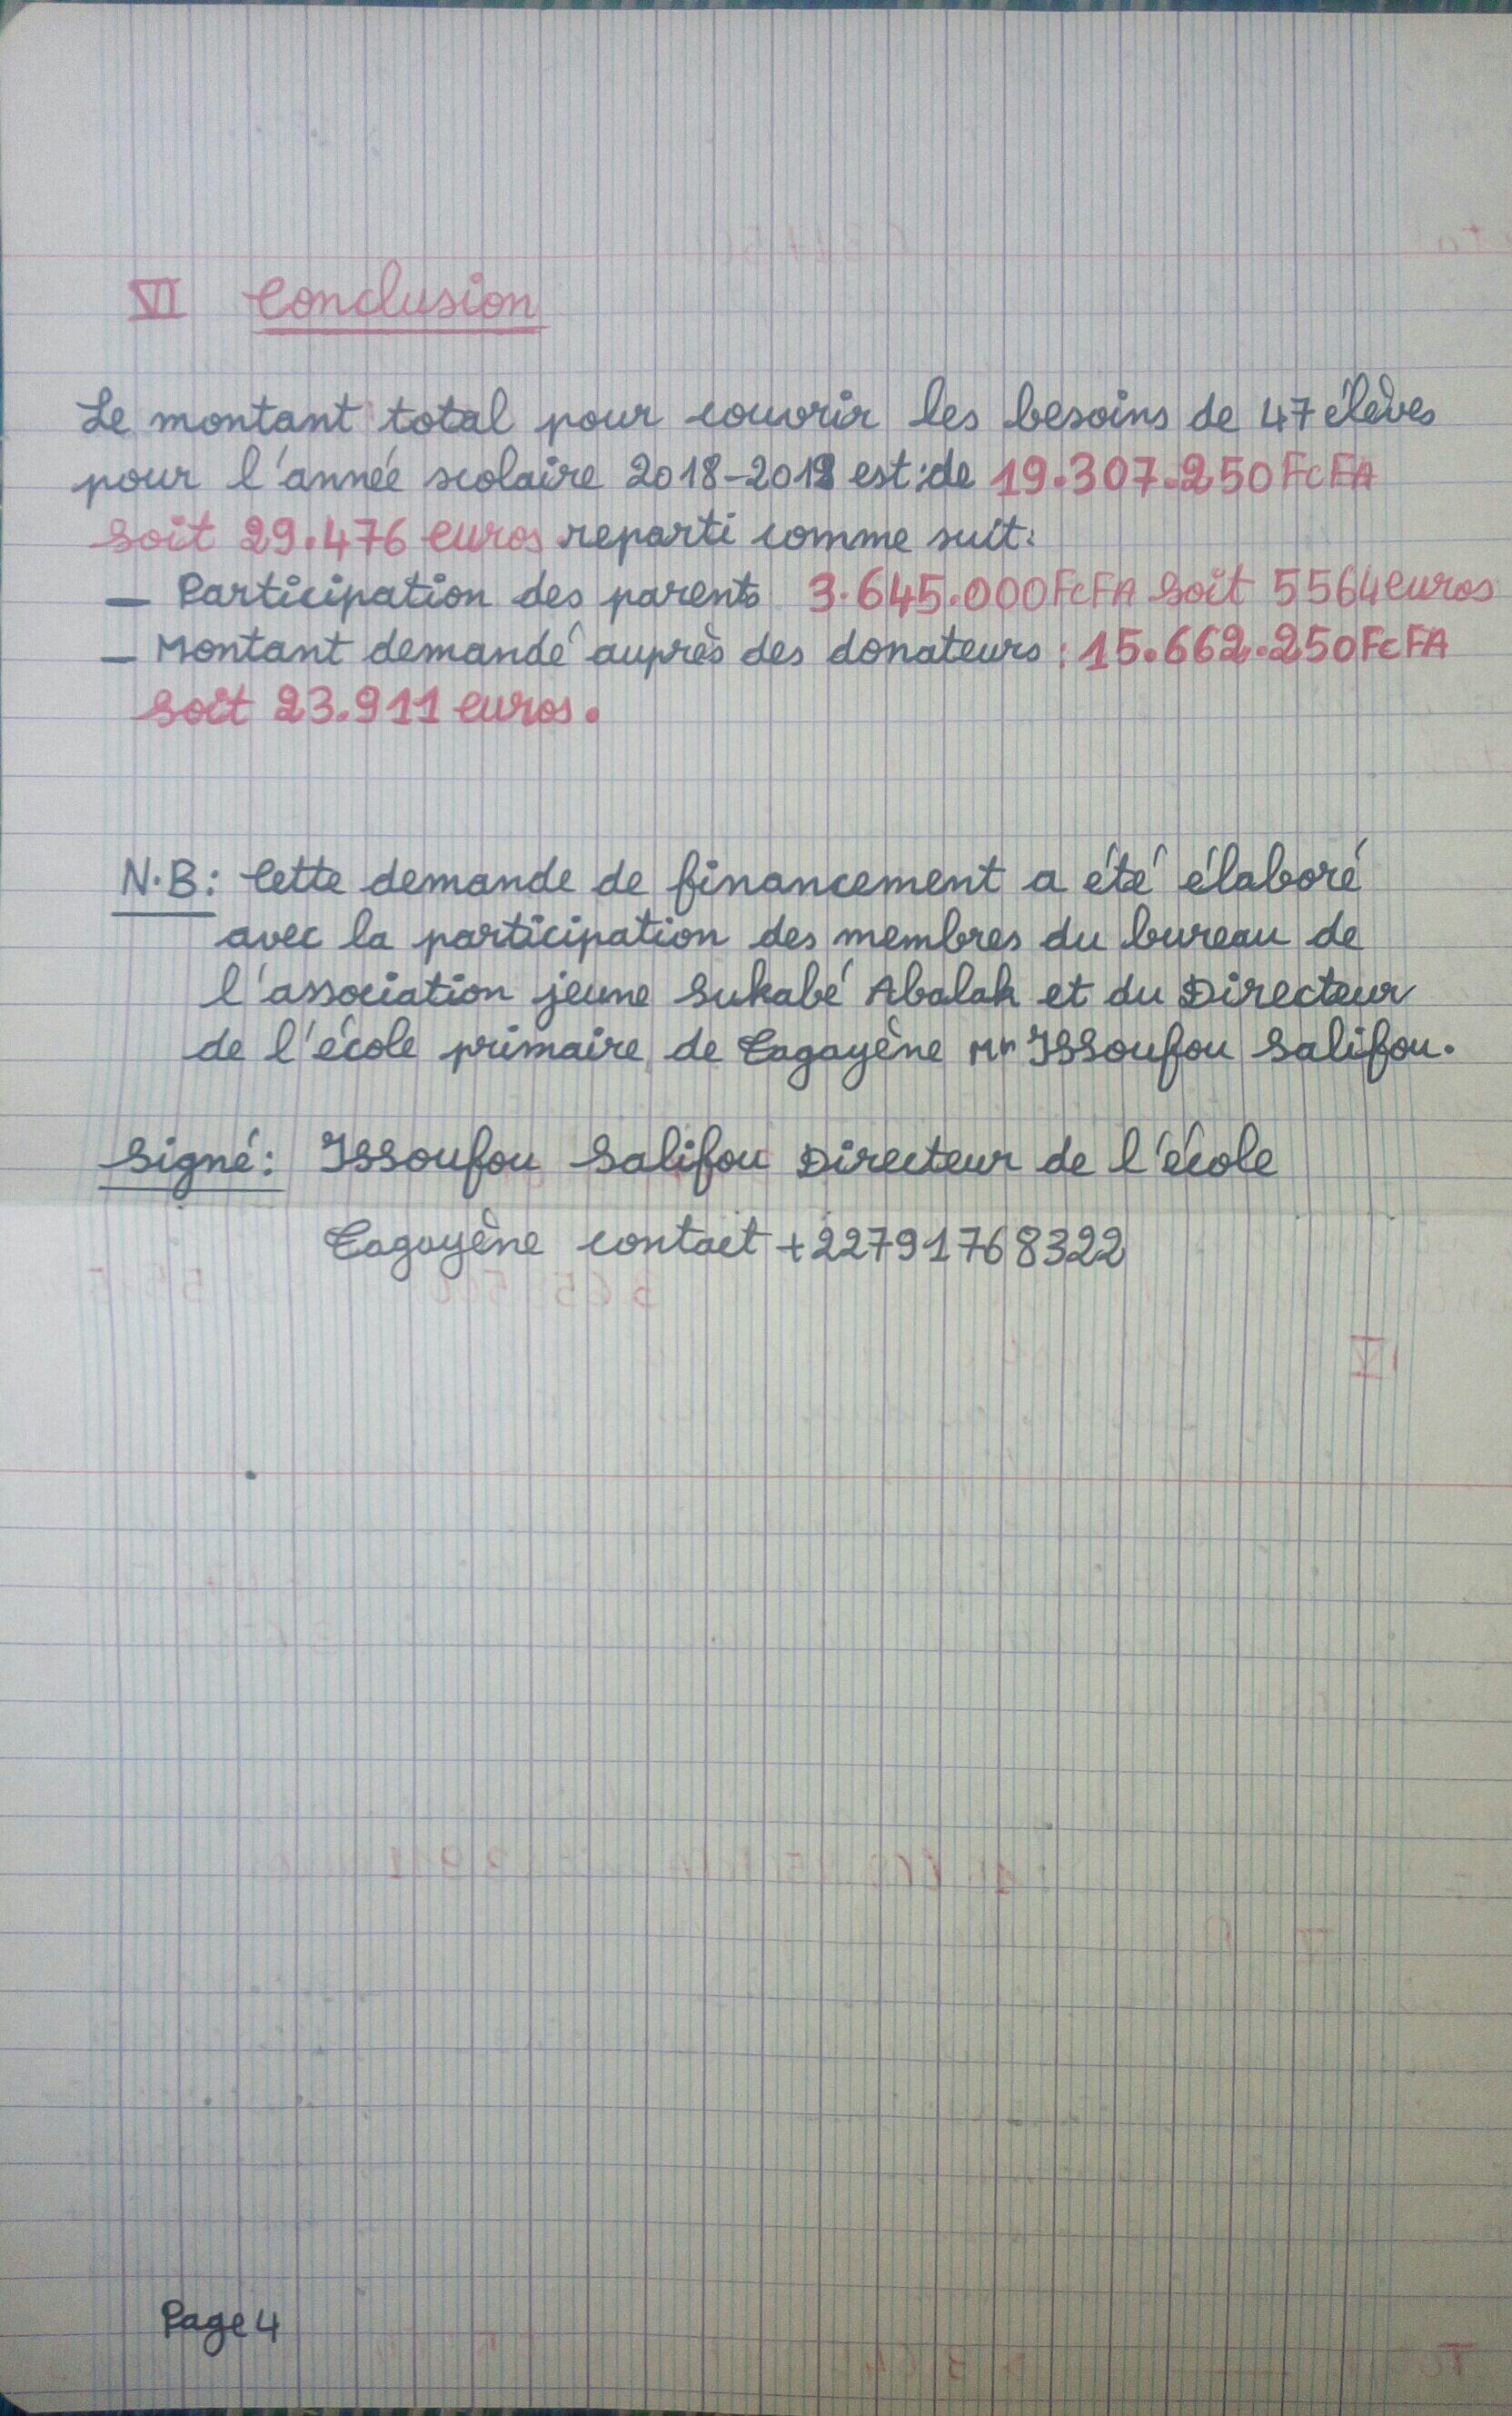 VI Conclusion
Le montant total pour couvrir les besoins de 47 élèves
pour l'année scolaire 2018-2019 est:de 19.307.250 FcFA
soit 29.476 euros reparti comme suit:
– Participation des parents 3.645.000 FcFA soit 5564 euros
– Montant demandé auprès des donateurs : 15.662.250 FcFA
soit 23.911 euros.
N.B: Cette demande de financement a été élaboré
avec la participation des membres du bureau de
l'association jeune Sukabé Abalak et du Directeur
de l'école primaire de Tagayène Mr ISSoufou Salifou.
Signé: ISSoufou Salifou Directeur de l'école
Tagayène contact +22791768322
Page 4